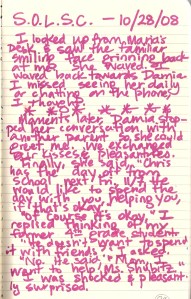 S.O.L.S.C. – 10/28/08
I looked up from Maria's
desk & saw the familiar
smiling face grinning back
at me. She waved. I
waved back towards Damia.
I missed seeing her daily
or chatting on the phone,
I thought.
Moments later, Damia stop-
ped her conversation with
another parent so she could
greet me. We exchanged
our kisses & pleasantries.
Finally, she said, "Chris
has the day off from
school next Fri. He'd
like to spend the
day with you, helping you,
if that's okay."
"Of course it's okay," I
replied thinking of my
former grade student.
"He doesn't want to spend
it with friends?" I asked.
"No. He said, 'Mama, I
want to help Ms. Shubitz.'"
I was shocked & pleasant-
ly surprised.